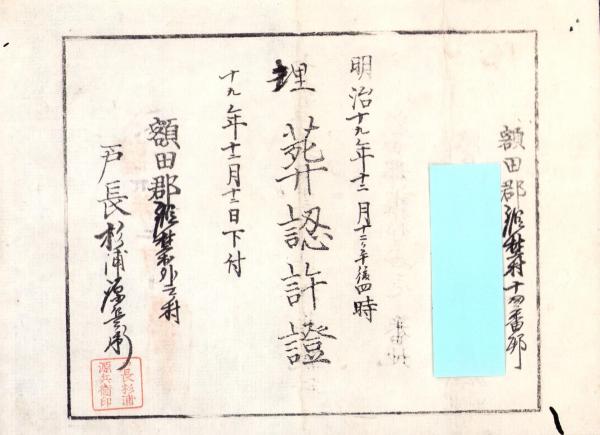 額田郡 村十四番邸
明治十九年十二月十二日午後四時
埋葬認許證
十九年十二月十二日下付
額田郡 村外三村
戸長杉浦源兵衛
長杉浦
源兵衛印